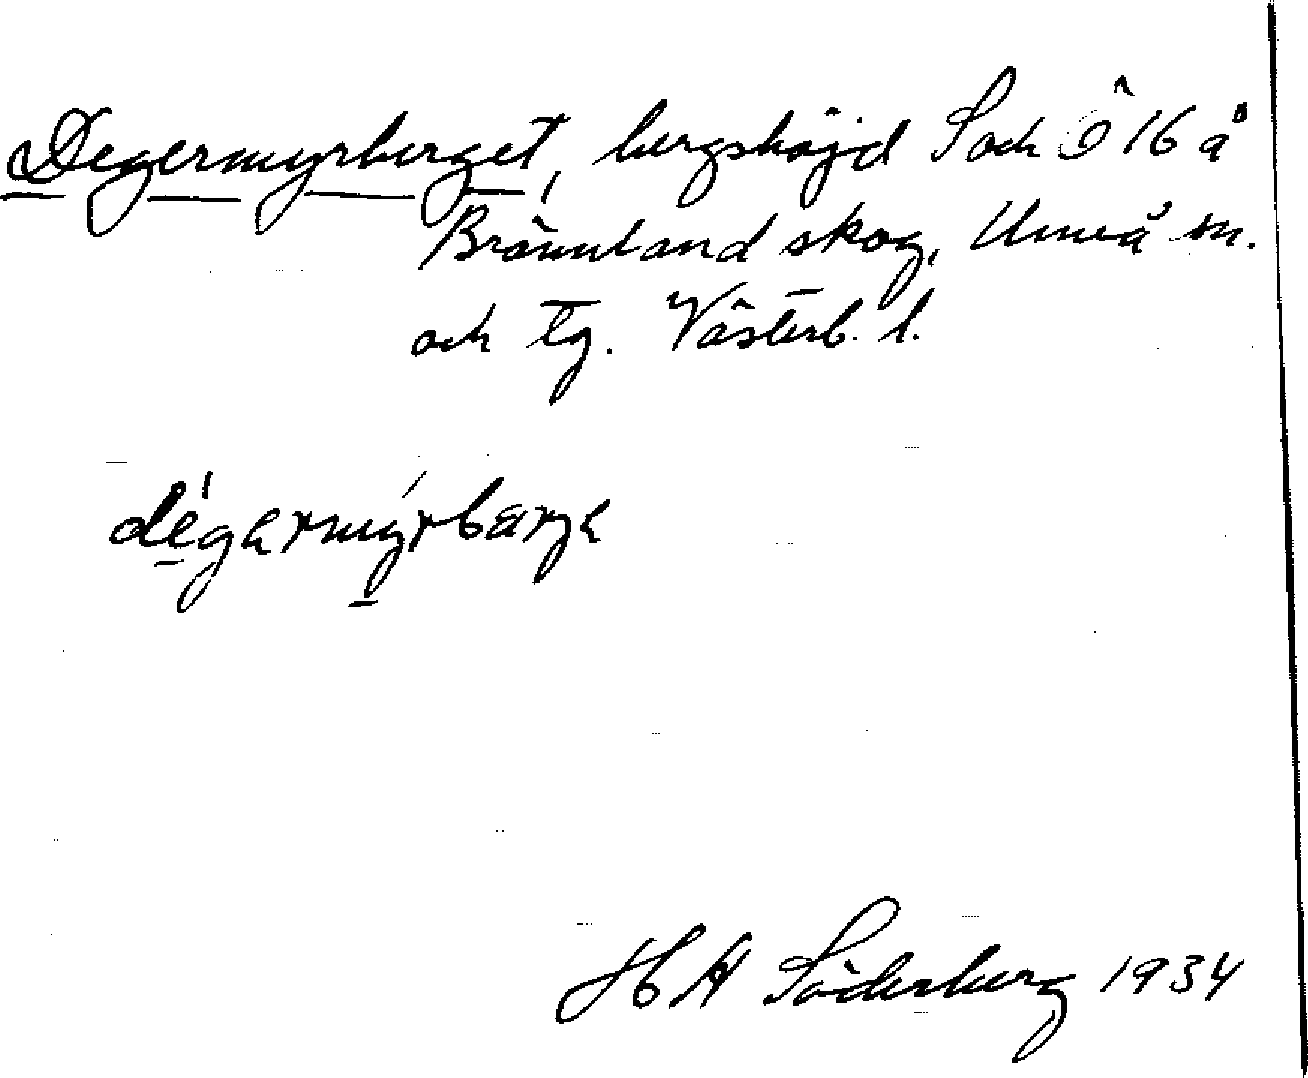 Degermyrberget, bergshöjd S och Ö 16 å
Brännland skog, Umeå sn.
och tg. Västerb. l.
dégermýrbärje
H A Söderberg 1934